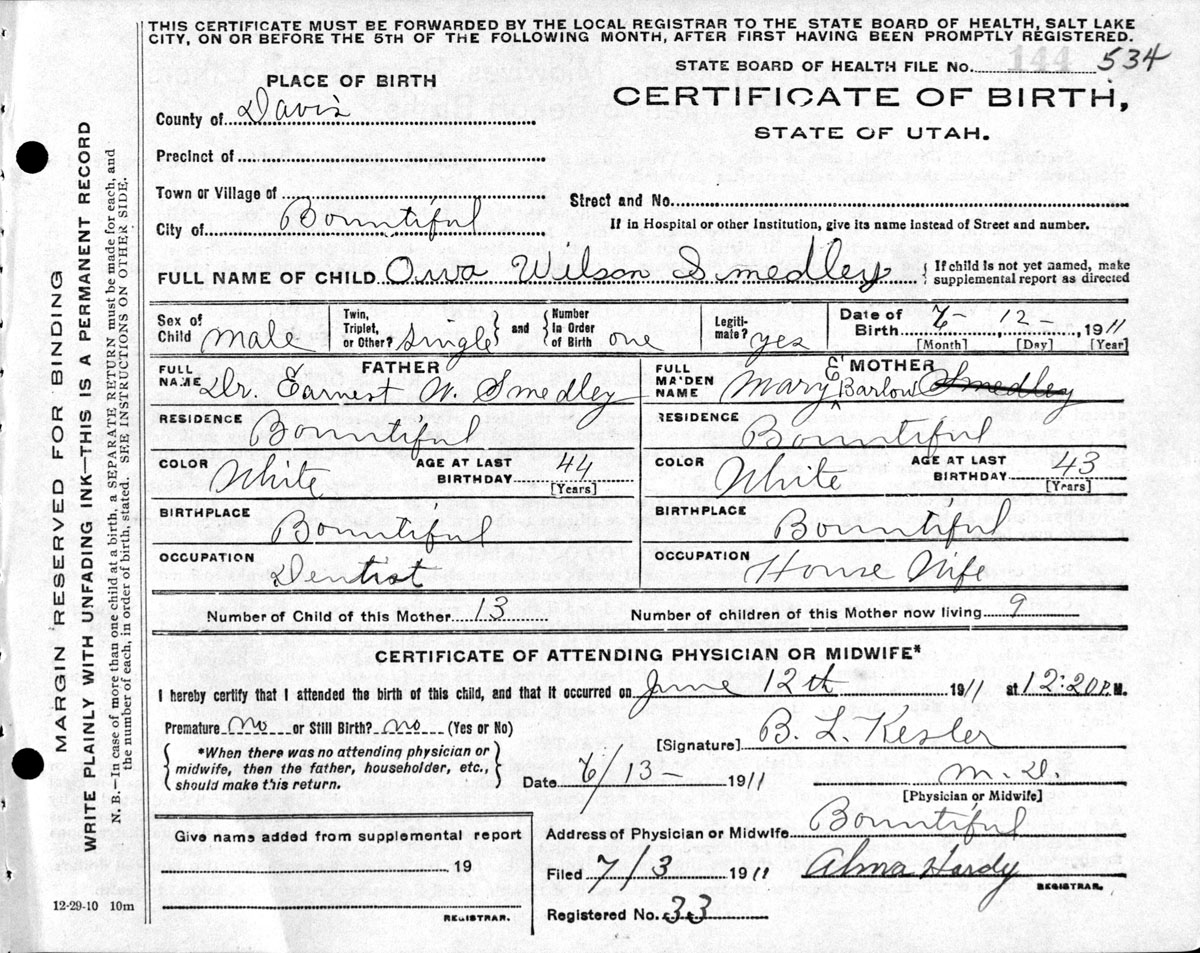 THIS CERTIFICATE MUST BE FORWARDED BY THE LOCAL REGISTRAR TO THE STATE BOARD OF HEALTH, SALT LAKE
CITY, ON OR BEFORE THE 5TH OF THE FOLLOWING MONTH, AFTER FIRST HAVING BEEN PROMPTLY REGISTERED.
MARGIN RESERVED FOR BINDING
WRITE PLAINLY WITH UNFADING INK—THIS IS A PERMANENT RECORD
N. B.—In case of more than one child at a birth, a SEPARATE RETURN must be made for each, and
the number of each, in order of birth, stated. SEE INSTRUCTIONS ON OTHER SIDE.
STATE BOARD OF HEALTH FILE No. 534
144
CERTIFICATE OF BIRTH,
STATE OF UTAH.
PLACE OF BIRTH
County of Davis
Precinct of
Town or Village of
City of Bountiful
Street and No.
If in Hospital or other Institution, give its name instead of Street and number.
FULL NAME OF CHILD Owa Wilson Smedley { If child is not yet named, make
supplemental report as directed
Sex of Child male
Twin, Triplet, or Other? single } and { Number In Order of Birth one
Legiti-mate? yes
Date of Birth 6 - 12 - 1911
[Month] [Day] [Year]
FATHER
FULL NAME Dr. Earnest W. Smedley
RESIDENCE Bountiful
COLOR White AGE AT LAST BIRTHDAY 44
[Years]
BIRTHPLACE Bountiful
OCCUPATION Dentist
MOTHER
FULL MAIDEN NAME Mary E Barlow Smedley
RESIDENCE Bountiful
COLOR White AGE AT LAST BIRTHDAY 43
[Years]
BIRTHPLACE Bountiful
OCCUPATION House Wife
Number of Child of this Mother 13 Number of children of this Mother now living 9
CERTIFICATE OF ATTENDING PHYSICIAN OR MIDWIFE*
I hereby certify that I attended the birth of this child, and that it occurred on June 12th 1911 at 12:20 P.M.
Premature no or Still Birth? no (Yes or No)
{ *When there was no attending physician or
midwife, then the father, householder, etc.,
should make this return. }
[Signature] B. L. Kesler
Date 6/13 - 1911 M. D.
[Physician or Midwife]
Give name added from supplemental report
19
REGISTRAR.
Address of Physician or Midwife Bountiful
Filed 7/3 1911 Alma Hardy
REGISTRAR.
Registered No. 33
12-29-10 10m